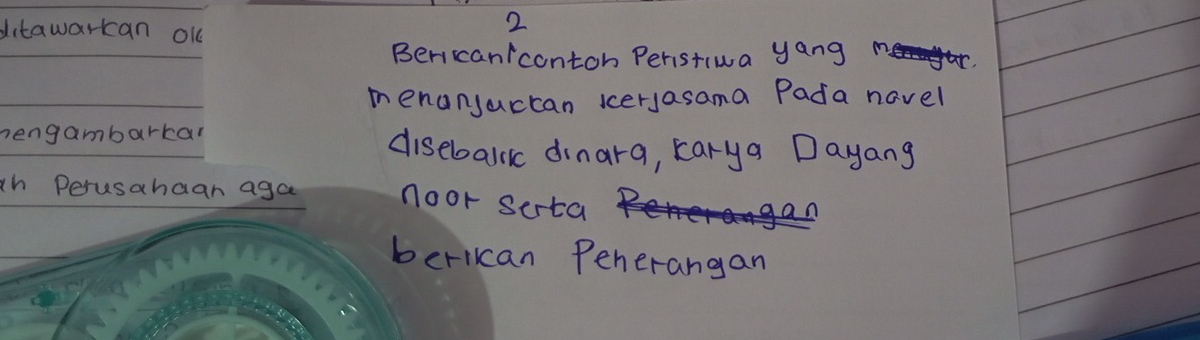 ditawarkan ole
mengambarkar
ah Perusahaan aga
2
Berikan contoh Peristiwa yang
menunjuckan kerjasama Pada novel
disebalik dinara, karya Dayang
noor serta Penerangan
berikan Penerangan